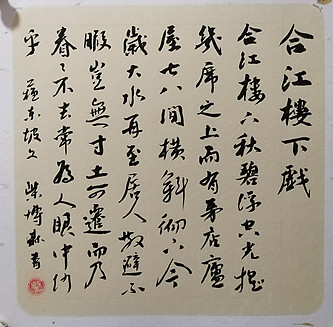 合江樓下戲
合江樓下秋碧浮空光搖
几席之上而有茅店廬
屋七八間橫斜砌下今
歲大水再至居人散避不
暇豈無寸土可遷而乃
眷眷不去常為人眼中沙
乎 蘇東坡文 柴博森書